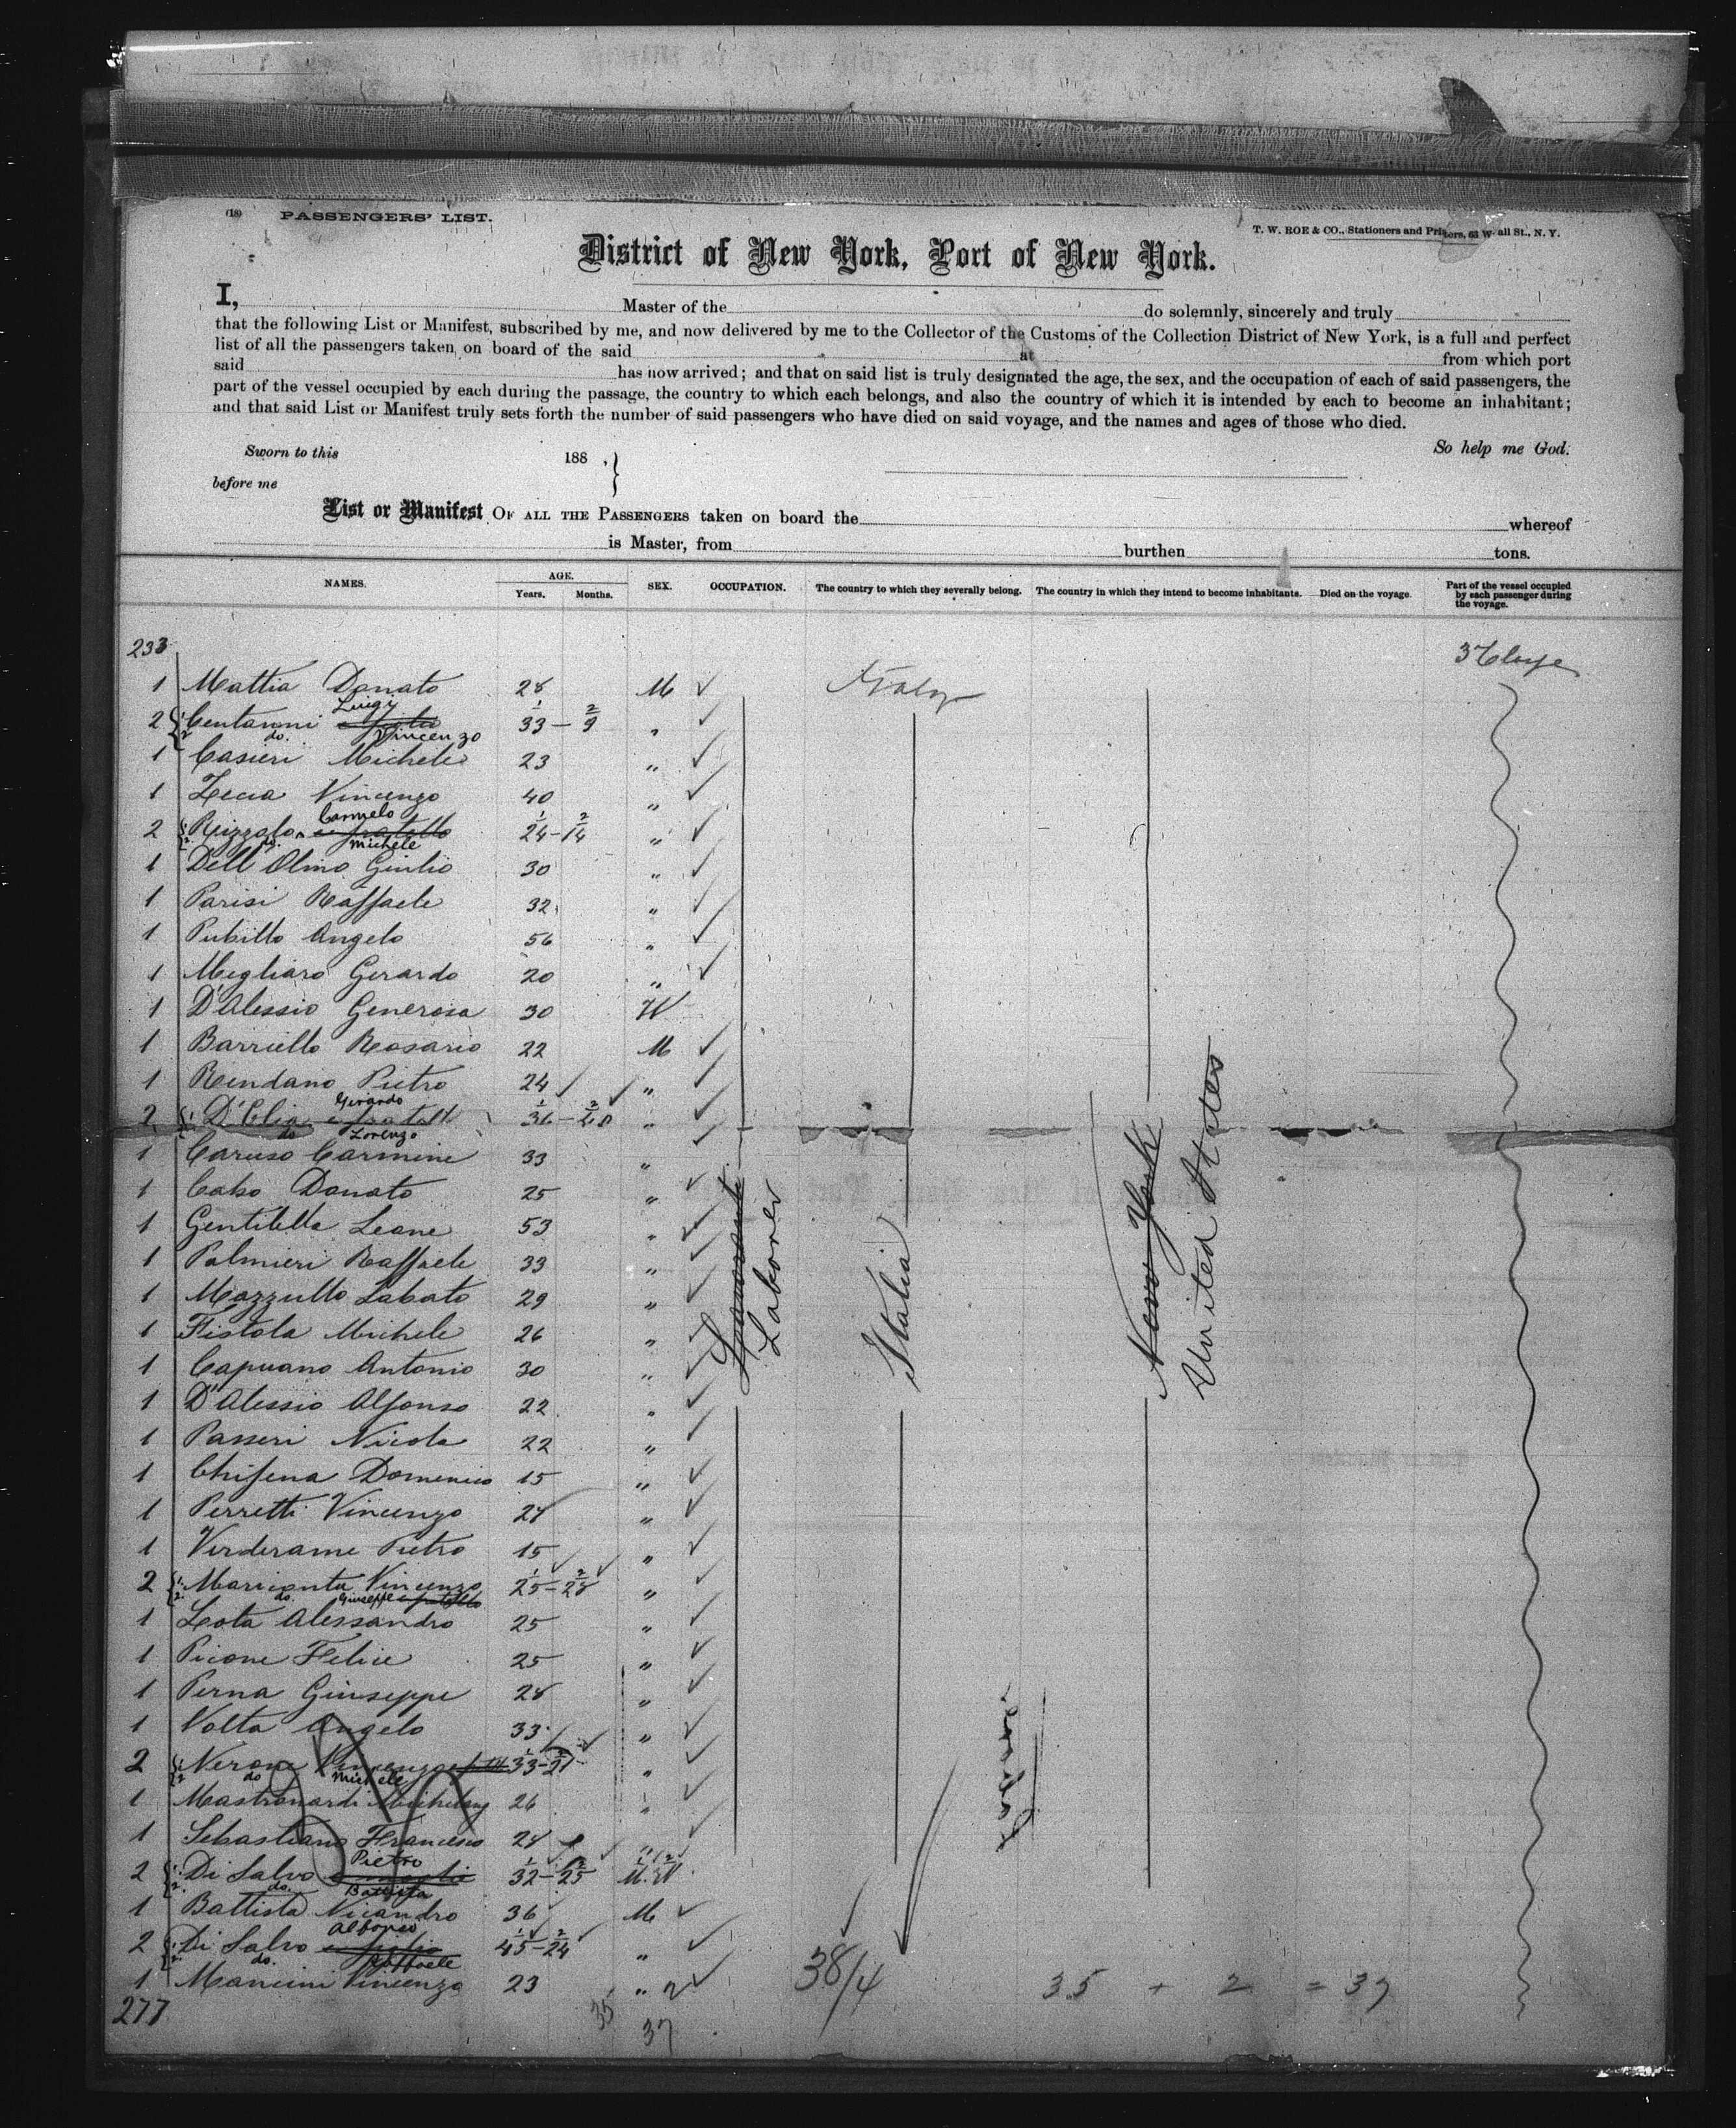 (18) PASSENGERS' LIST.
T. W. ROE & CO., Stationers and Printers, 63 Wall St., N. Y.
District of New York, Port of New York.
I, Master of the do solemnly, sincerely and truly
that the following List or Manifest, subscribed by me, and now delivered by me to the Collector of the Customs of the Collection District of New York, is a full and perfect
list of all the passengers taken on board of the said at from which port
said has now arrived; and that on said list is truly designated the age, the sex, and the occupation of each of said passengers, the
part of the vessel occupied by each during the passage, the country to which each belongs, and also the country of which it is intended by each to become an inhabitant;
and that said List or Manifest truly sets forth the number of said passengers who have died on said voyage, and the names and ages of those who died.
So help me God.
Sworn to this 188 ,
before me
List or Manifest OF ALL THE PASSENGERS taken on board the whereof
is Master, from burthen tons.
NAMES. AGE. Years. Months. SEX. OCCUPATION. The country to which they severally belong. The country in which they intend to become inhabitants. Died on the voyage. Part of the vessel occupied by each passenger during the voyage.
233
1 Mattia Donato 28 M Italy
Luigi
2 Centanni e figlio 33 - 9 "
do. Vincenzo
1 Casieri Michele 23 "
1 Lecia Vincenzo 40 "
Carmelo
2 Rizzolo e fratello 24 - 14 "
do. Michele
1 Dell Olmo Giulio 30 "
1 Parisi Raffaele 32 "
1 Pubillo Angelo 56 "
1 Megliaro Gerardo 20 "
1 D'Alessio Generosa 30 W
1 Barriello Rosario 22 M
1 Rendano Pietro 24 "
Gerardo
2 D'Elia e fratello 36 - "
do Lorenzo
1 Caruso Carmine 33 "
1 Cabo Donato 25 "
1 Gentilella Leone 53 "
1 Palmieri Raffaele 33 "
1 Mazzullo Sabato 29 "
1 Fistola Michele 26 "
1 Capuano Antonio 30 "
1 D'Alessio Alfonso 22 "
1 Passeri Nicola 22 "
1 Chifena Domenico 15 "
1 Perretti Vincenzo 24 "
1 Verderame Pietro 15 "
2 Mariconta Vincenzo 25 - 28 "
do. Giuseppe e fratello
1 Lota Alessandro 25 "
1 Picone Felice 25 "
1 Perna Giuseppe 28 "
1 Volta Angelo 33 "
2 Nerone Vincenzo 33 - 21 "
do Michele
1 Mastronardi 26 "
1 Sebastiano Francesco 24 "
Pietro
2 Di Salvo e moglie 32 - 25 M. W
do. Battista
1 Battista Nicandro 36 M
Alfonso
2 Di Salvo e figlio 45 - 24 "
do. Raffaele
1 Mancini Vincenzo 23 "
277
Laborer
Italia
New York
United States
38/4
35 + 2 = 37
35
37